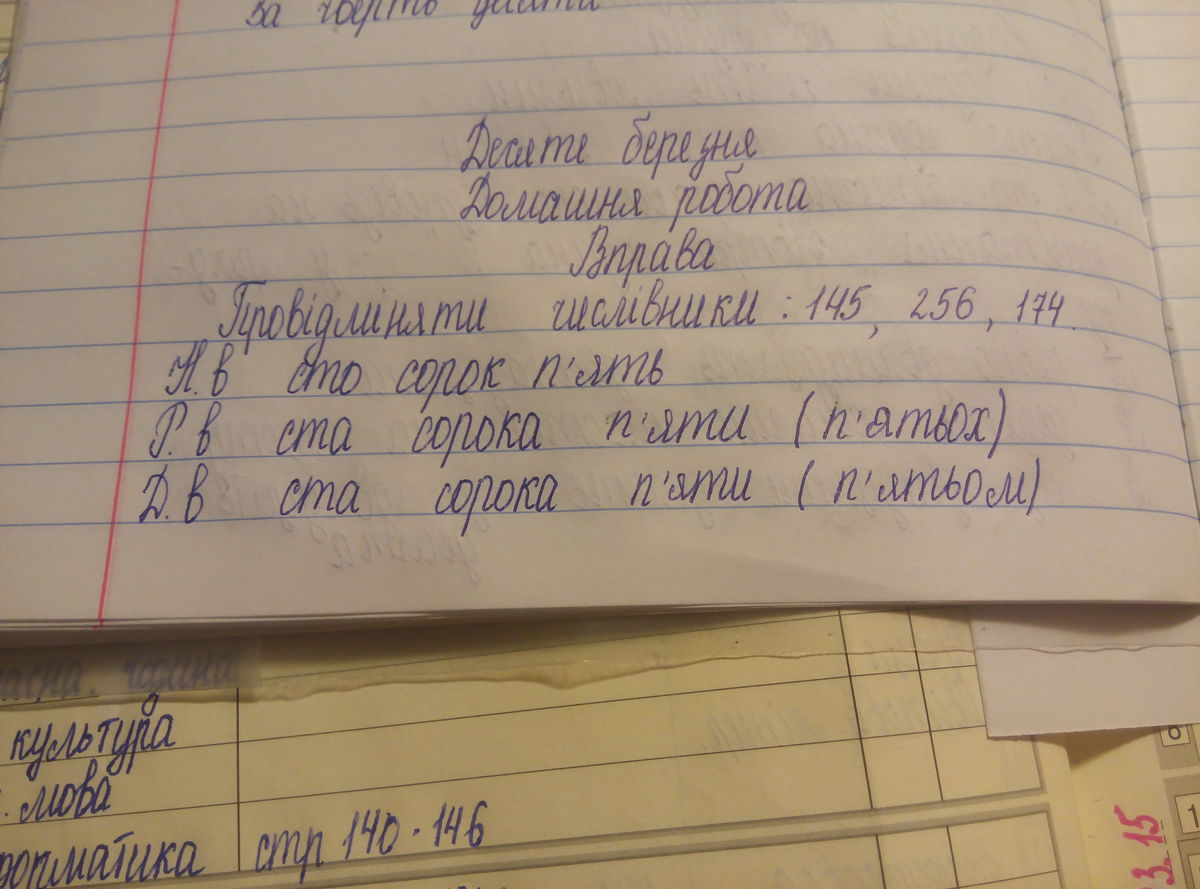 за чверть
Десяте березня
Домашня робота
Вправа
Провідміняти числівники : 145, 256, 174.
Н.в сто сорок п'ять
Р.в ста сорока п'яти (п'ятьох)
Д.в ста сорока п'яти (п'ятьом)
година
культура
мова
стр 140-146
15